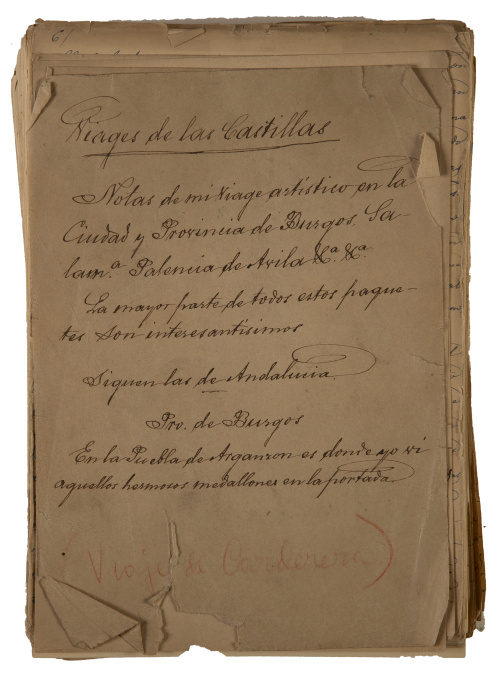 6
Viages de las Castillas
Notas de mi viage artístico en la
Ciudad y Provincia de Burgos. Sa-
lam.ª Palencia de Avila &.ª &.ª
La mayor parte de todos estos paque-
tes son interesantísimos
Siguen las de Andalucia.
Pro. de Burgos
En la Puebla de Arganzon es donde yo vi
aquellos hermosos medallones en la portada.
(Viaje de Carderera)